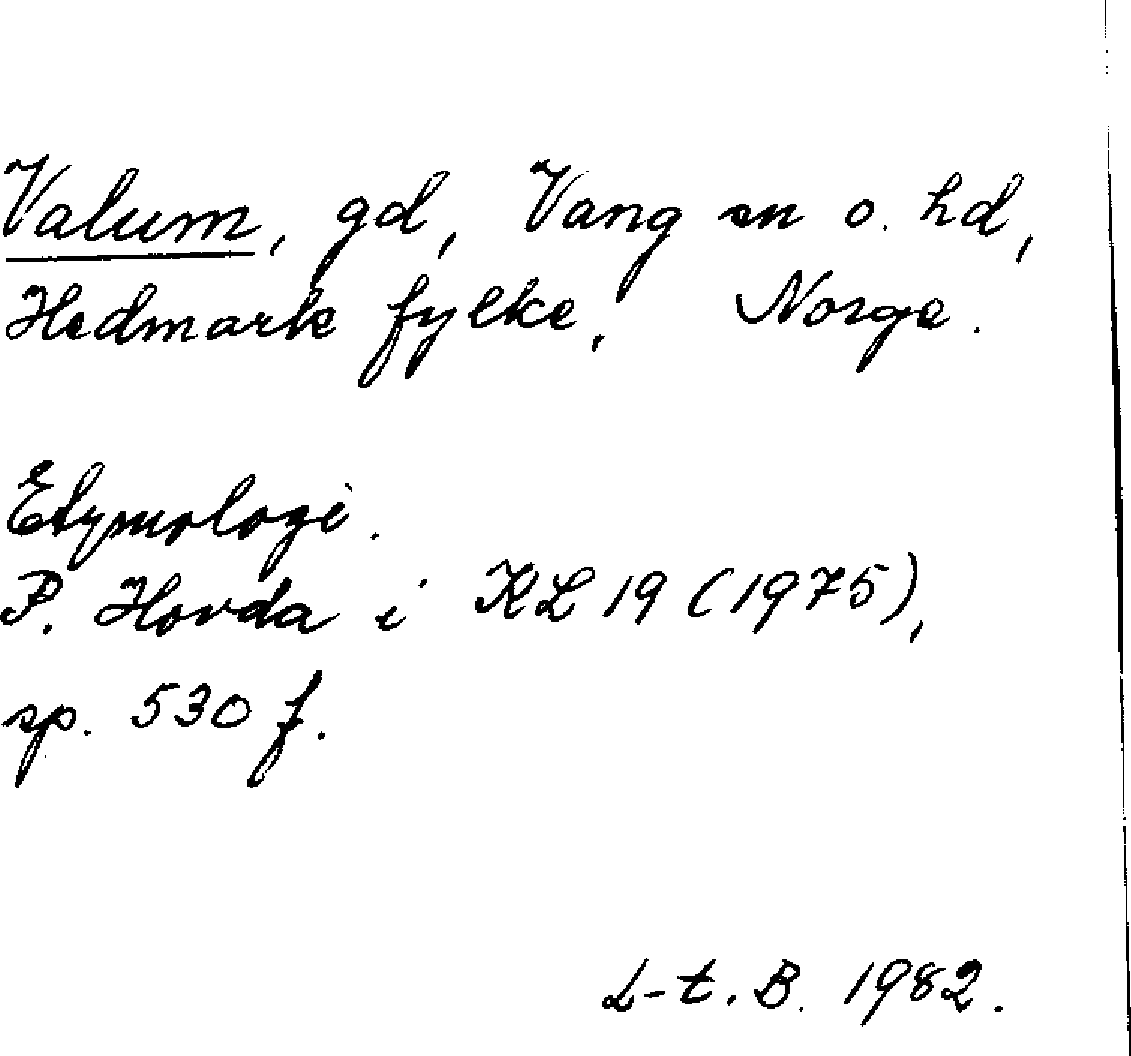 Valum, gd, Vang sn o. hd,
Hedmark fylke, Norge.
Etymologi.
P. Hovda i KL 19 (1975),
sp. 530 f.
L-t. B. 1982.